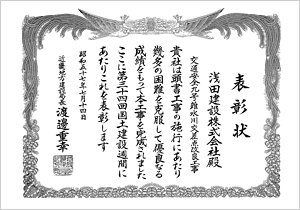 表彰状
浅田建設株式会社殿
交通安全九号雉水川交差点改良工事
貴社は頭書工事の施行にあたり
幾多の困難を克服して優良なる
成績をもって本工事を完成されました
ここに第三十四回国土建設週間に
あたりこれを表彰します
昭和五十七年七月十日
近畿地方建設局長 渡邊重幸